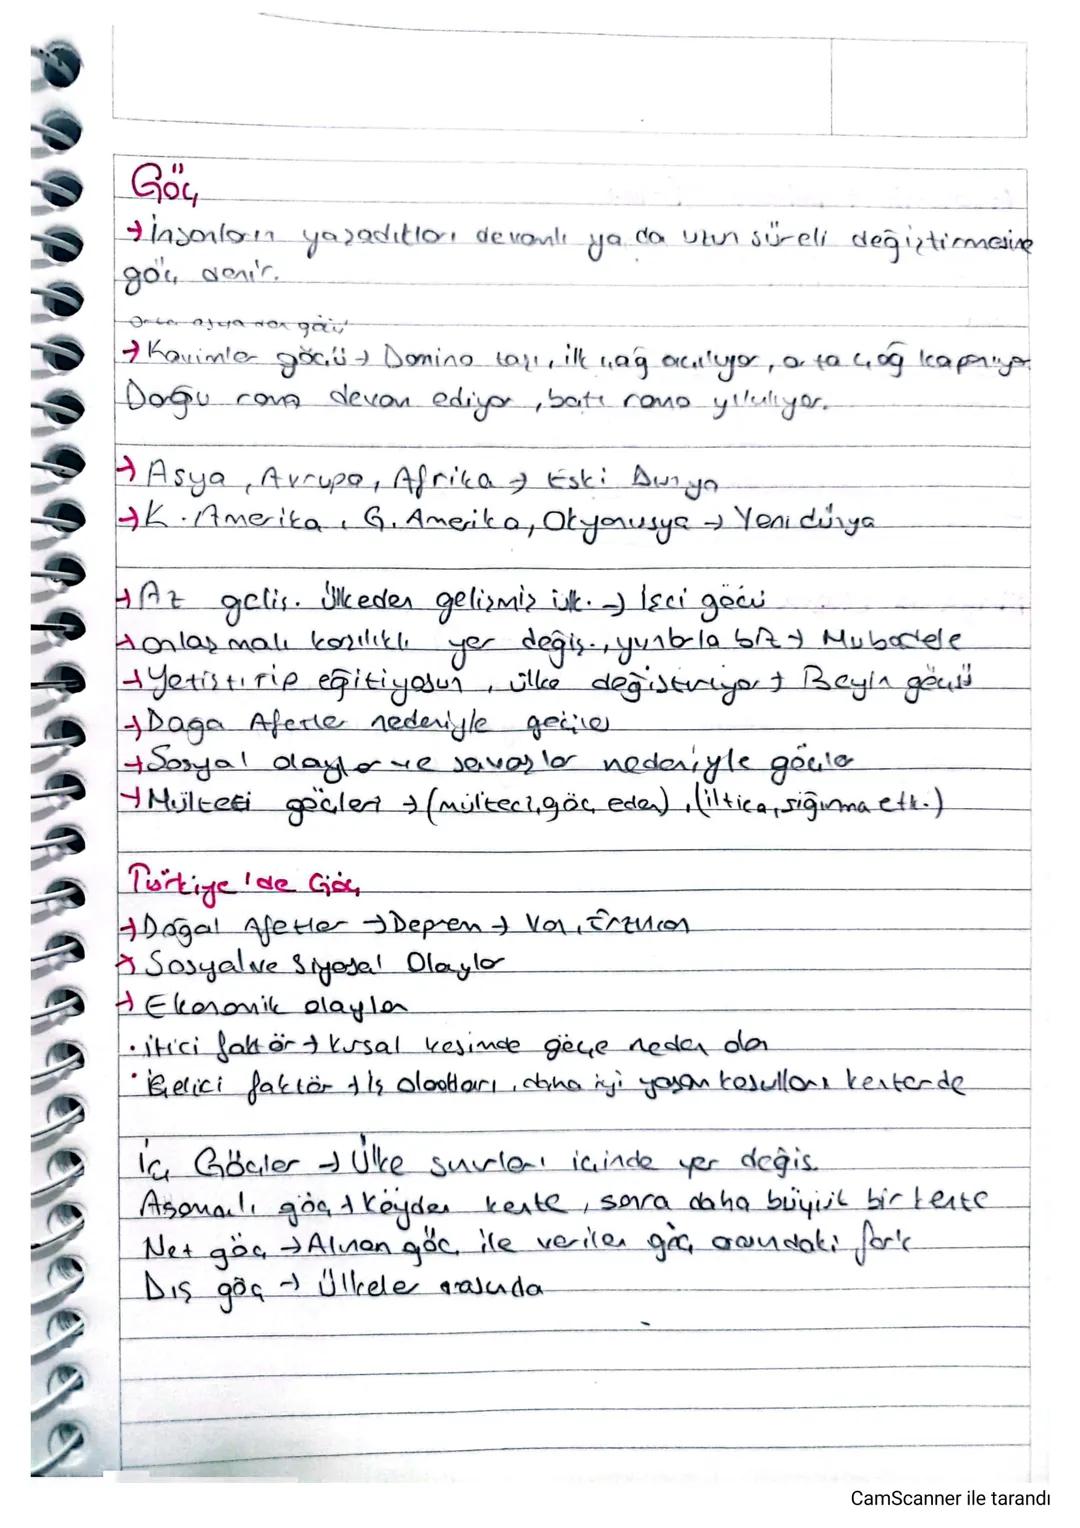 Göç
→İnsanların yaşadıkları devamlı ya da uzun süreli değiştirmesine
göç denir.
Orta asyadan göçü
→Kavimler göçü → Domino taşı, ilk çağ açılıyor, orta çağ kapanıyor
Doğu roma devam ediyor, batı roma yıkılıyor.
→Asya, Avrupa, Afrika → Eski Dünya
→K. Amerika, G. Amerika, Okyanusya → Yeni dünya
→Az geliş. ülkeden gelişmiş ülk. → İşçi göçü
→anlaşmalı karşılıklı yer değiş., yunanla biz → Mubadele
→Yetiştirip eğitiyosun, ülke değiştiriyor → Beyin göçü
→Doga Afetler nedeniyle göçler
→Sosyal olaylar ve savaşlar nedeniyle göçler
→Mülteci göçleri → (mülteci, göç eden), (iltica, sığınma etk.)
Türkiye'de Göç
→Doğal Afetler → Deprem → Van, Erzincan
→Sosyal ve Siyasal Olaylar
→Ekonomik olaylar
• itici faktör → kırsal kesimde göçe neden olan
• Çekici faktör → iş olanakları, daha iyi yaşam koşulları kentlerde
İç Göçler → Ülke sınırları içinde yer değiş.
Aşamalı göç → Köyden kente, sonra daha büyük bir kente
Net göç → Alınan göç ile verilen göç arasındaki fark
Dış göç → Ülkeler arasında
CamScanner ile tarandı